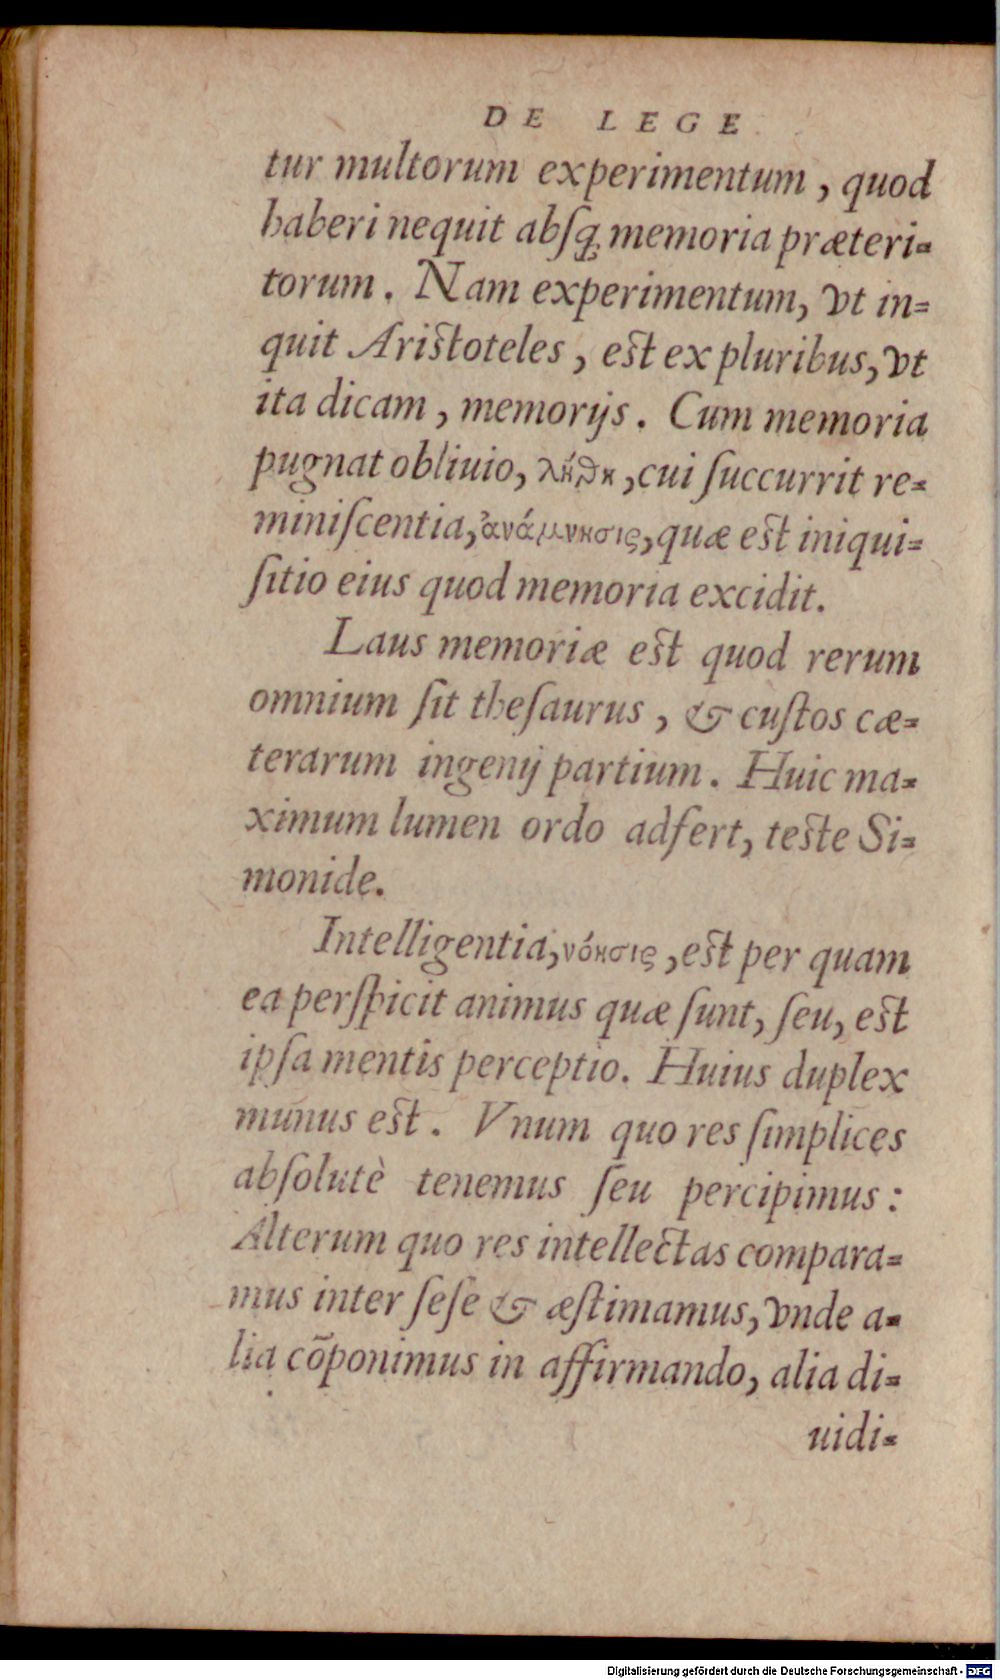 DE LEGE
tur multorum experimentum, quod
haberi nequit absq; memoria præteri=
torum. Nam experimentum, vt in=
quit Aristoteles, est ex pluribus, vt
ita dicam, memorijs. Cum memoria
pugnat obliuio, λήθη, cui ſuccurrit re=
miniſcentia, ἀνάμνησις, quæ est iniqui=
ſitio eius quod memoria excidit.
Laus memoriæ est quod rerum
omnium ſit theſaurus, & cuſtos cæ=
terarum ingenij partium. Huic ma=
ximum lumen ordo adfert, teste Si=
monide.
Intelligentia, νόησις, est per quam
ea perſpicit animus quæ ſunt, ſeu, est
ipſa mentis perceptio. Huius duplex
munus est. Vnum quo res ſimplices
abſolutè tenemus ſeu percipimus:
Alterum quo res intellectas compara=
mus inter ſeſe & æſtimamus, vnde a=
lia cõponimus in affirmando, alia di=
uidi=
Digitalisierung gefördert durch die Deutsche Forschungsgemeinschaft - DFG